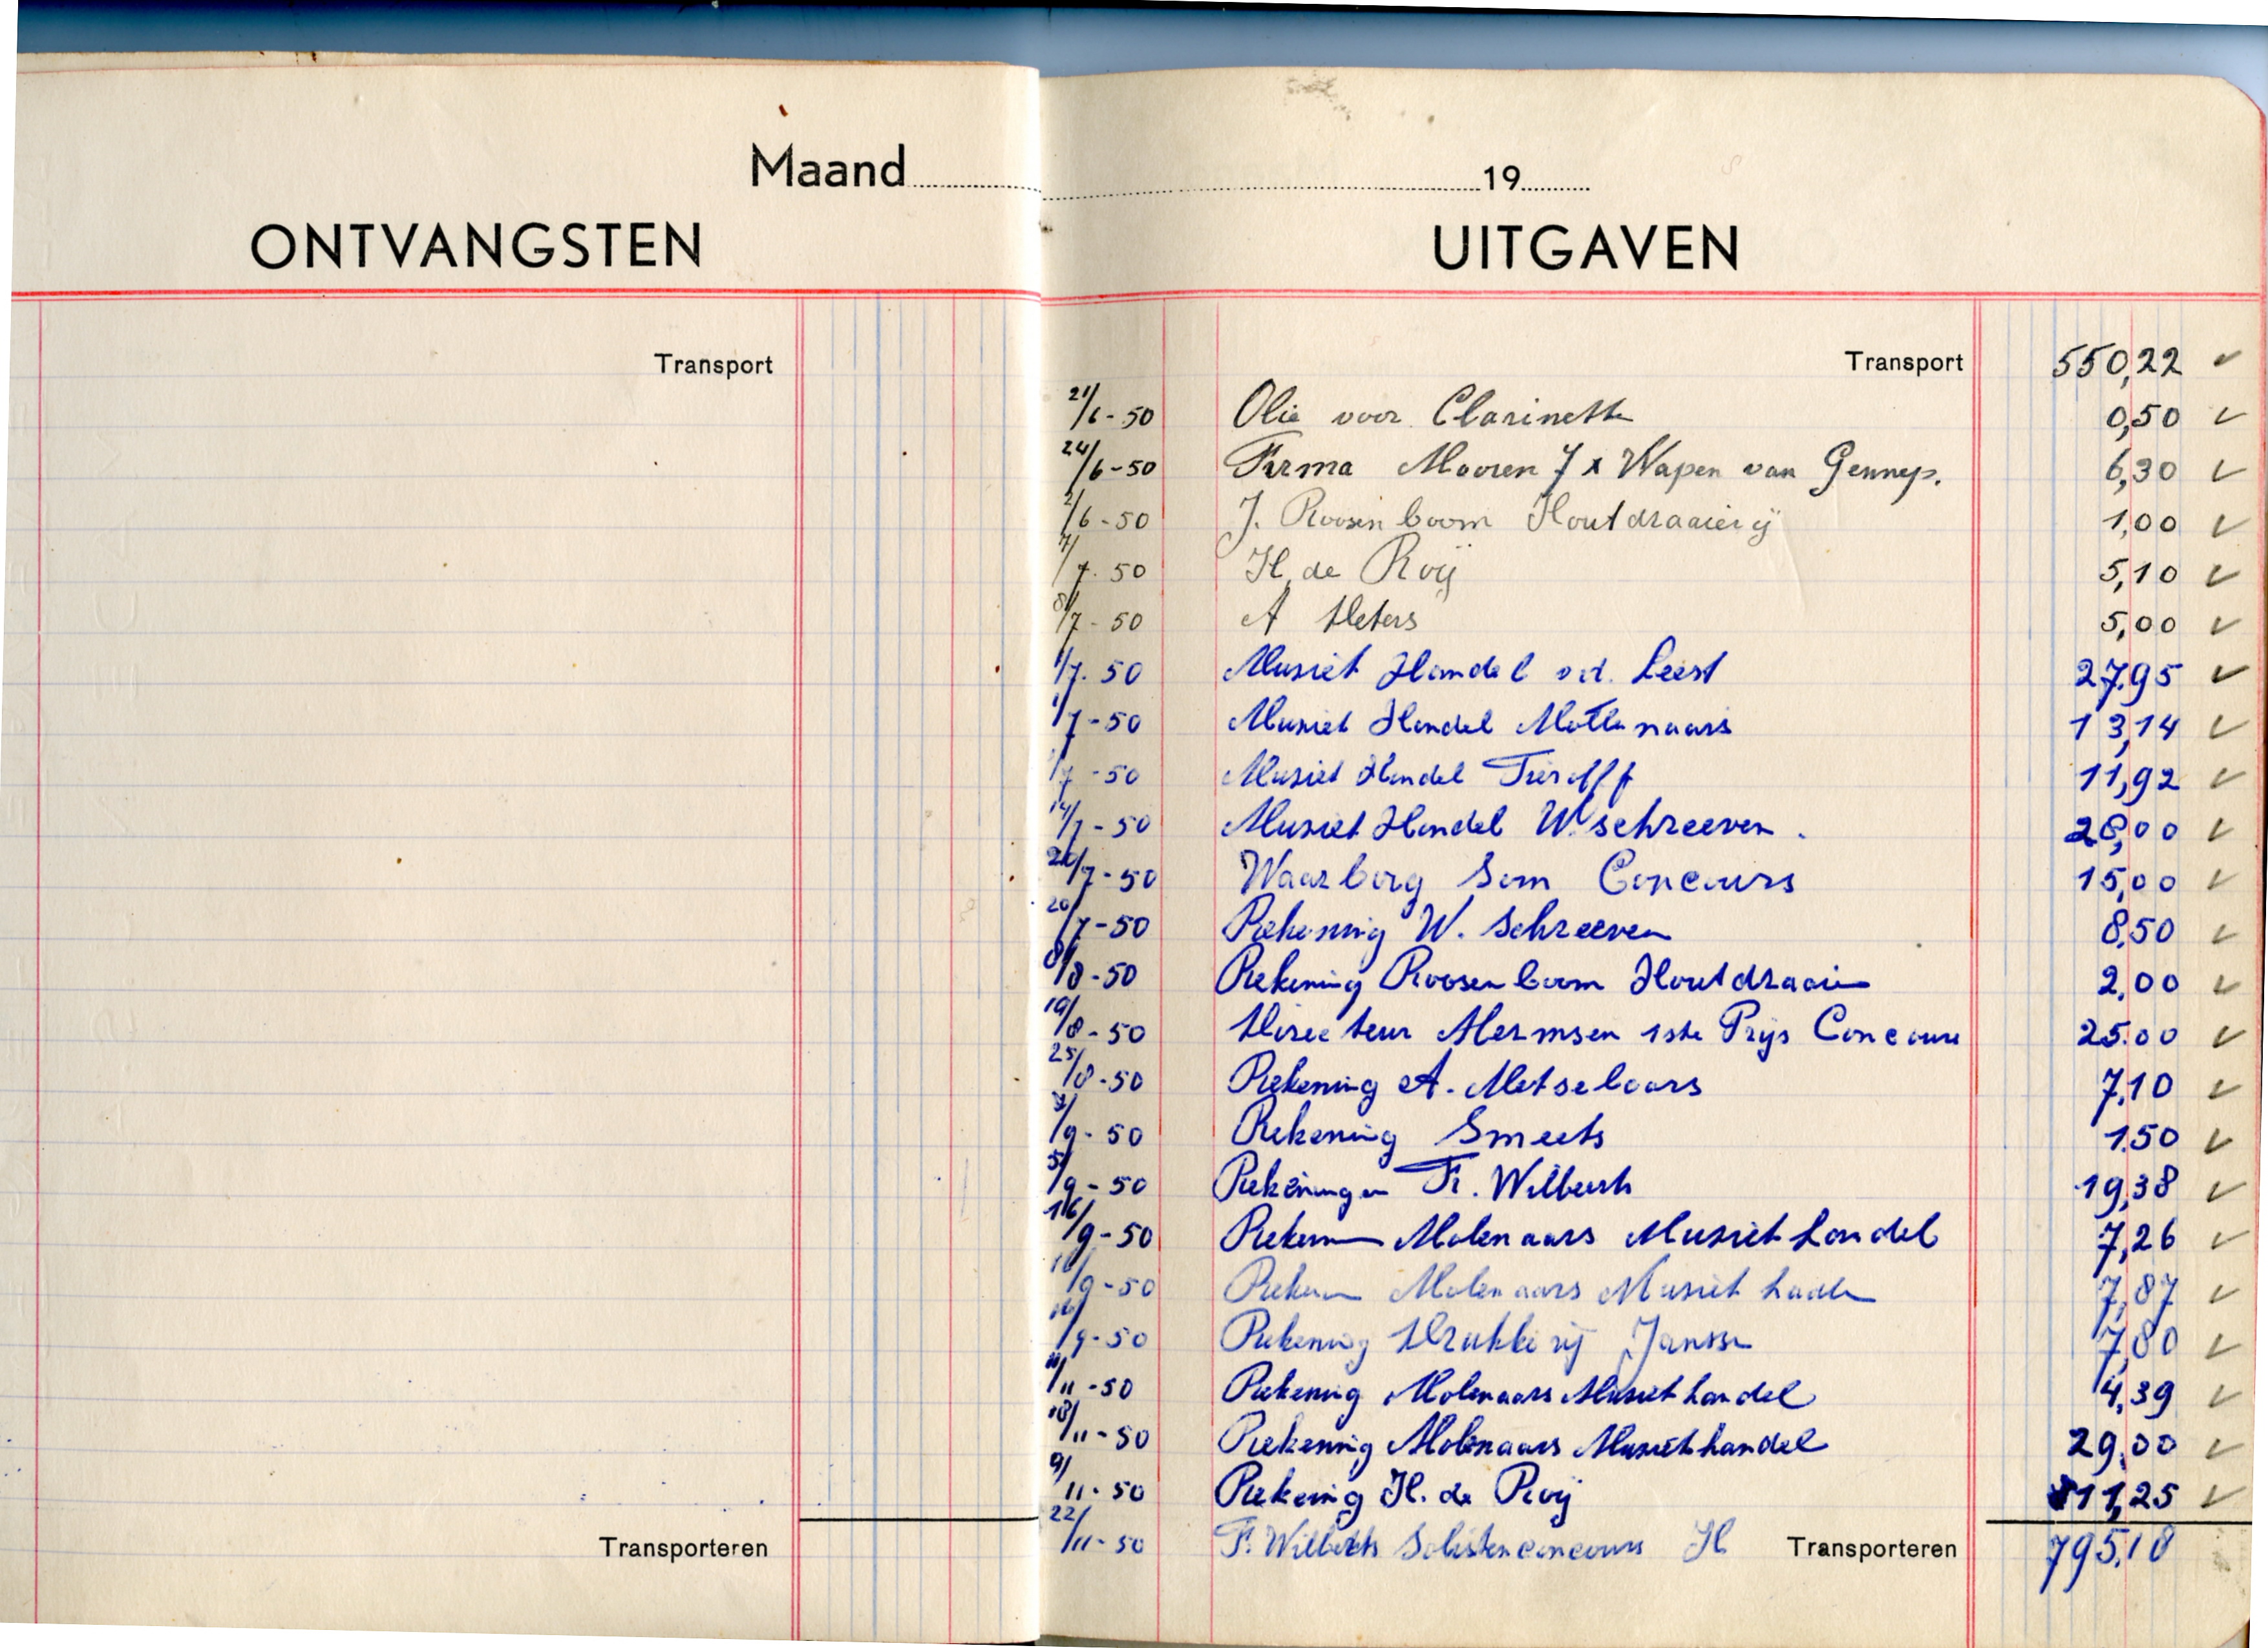 Maand 19
ONTVANGSTEN UITGAVEN
Transport Transport 550,22 ✓
21/6-50 Olie voor Clarinette 0,50 ✓
24/6-50 Firma Mooren 7 x Wapen van Gennep. 6,30 ✓
2/6-50 J. Roosenboom Houtdraaierij 1,00 ✓
7/7-50 H. de Roij 5,10 ✓
8/7-50 A Peters 5,00 ✓
1/7-50 Musiek Handel v.d. Leest 27,95 ✓
1/7-50 Musiek Handel Mollenaars 13,14 ✓
1/7-50 Musiek Handel Tierolff 11,92 ✓
14/7-50 Musiek Handel W. schreeven. 28,00 ✓
20/7-50 Waarborg Som Concours 15,00 ✓
20/7-50 Rekening W. Schreeven 8,50 ✓
8/8-50 Rekening Roosenboom Houtdraaier 2,00 ✓
19/8-50 Directeur Hermsen 1ste Prijs Concours 25.00 ✓
25/8-50 Rekening A. Metselaars 7,10 ✓
/9-50 Rekening Smeets 1.50 ✓
5/9-50 Rekeningen Fr. Wilberts 19,38 ✓
16/9-50 Rekening Molenaars Musiekhandel 7,26 ✓
16/9-50 Rekening Molenaars Musiek 7,87 ✓
16/9-50 Rekening Drukkerij Janssen 7,80 ✓
/11-50 Rekening Molenaars Musiekhandel 4,39 ✓
18/11-50 Rekening Molenaars Musiekhandel 29.00 ✓
9/11-50 Rekening H. de Roij 11,25 ✓
22/11-50 F. Wilberts Solistenconcours
Transporteren Transporteren 795,18